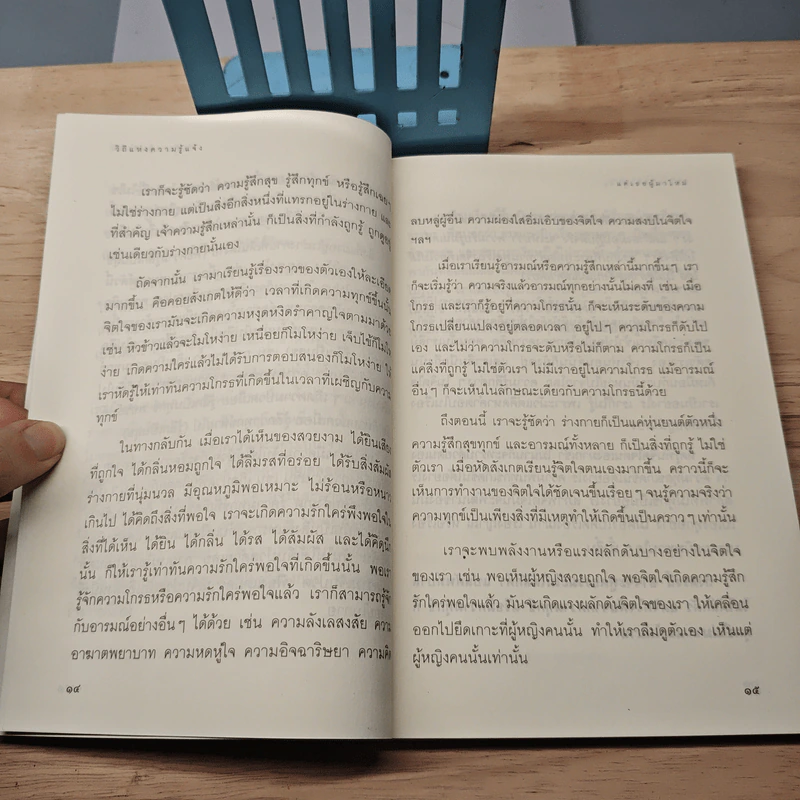 วิถีแห่งความรู้แจ้ง
เราก็จะรู้ชัดว่า ความรู้สึกสุข รู้สึกทุกข์ หรือรู้สึกเฉยๆ
ไม่ใช่ร่างกาย แต่เป็นสิ่งอีกสิ่งหนึ่งที่แทรกอยู่ในร่างกาย และ
ที่สำคัญ เจ้าความรู้สึกเหล่านั้น ก็เป็นสิ่งที่กำลังถูกรู้ ถูกดูอยู่
เช่นเดียวกับร่างกายนั้นเอง
ถัดจากนั้น เรามาเรียนรู้เรื่องราวของตัวเองให้ละเอียด
มากขึ้น คือคอยสังเกตให้ดีว่า เวลาที่เกิดความทุกข์ขึ้นนั้น
จิตใจของเรามันจะเกิดความหงุดหงิดรำคาญใจตามมาด้วย
เช่น หิวข้าวแล้วจะโมโหง่าย เหนื่อยก็โมโหง่าย เจ็บไข้ก็โมโห
ง่าย เกิดความใคร่แล้วไม่ได้รับการตอบสนองก็โมโหง่าย ให้
เราหัดรู้ให้เท่าทันความโกรธที่เกิดขึ้นในเวลาที่เผชิญกับความ
ทุกข์
ในทางกลับกัน เมื่อเราได้เห็นของสวยงาม ได้ยินเสียง
ที่ถูกใจ ได้กลิ่นหอมถูกใจ ได้ลิ้มรสที่อร่อย ได้รับสิ่งสัมผัส
ร่างกายที่นุ่มนวล มีอุณหภูมิพอเหมาะ ไม่ร้อนหรือหนาว
เกินไป ได้คิดถึงสิ่งที่พอใจ เราจะเกิดความรักใคร่พึงพอใจใน
สิ่งที่ได้เห็น ได้ยิน ได้กลิ่น ได้รส ได้สัมผัส และได้คิดนึก
นั้น ก็ให้เรารู้เท่าทันความรักใคร่พอใจที่เกิดขึ้นนั้น พอเรา
รู้จักความโกรธหรือความรักใคร่พอใจแล้ว เราก็สามารถรู้จัก
กับอารมณ์อย่างอื่นๆ ได้ด้วย เช่น ความลังเลสงสัย ความ
อาฆาตพยาบาท ความหดหู่ใจ ความอิจฉาริษยา ความคิด
๑๔
แด่เธอผู้มาใหม่
ลบหลู่ผู้อื่น ความผ่องใสอิ่มเอิบของจิตใจ ความสงบในจิตใจ
ฯลฯ
เมื่อเราเรียนรู้อารมณ์หรือความรู้สึกเหล่านี้มากขึ้นๆ เรา
ก็จะเริ่มรู้ว่า ความจริงแล้วอารมณ์ทุกอย่างนั้นไม่คงที่ เช่น เมื่อ
โกรธ และเราก็รู้อยู่ที่ความโกรธนั้น ก็จะเห็นระดับของความ
โกรธเปลี่ยนแปลงอยู่ตลอดเวลา อยู่ไปๆ ความโกรธก็ดับไป
เอง และไม่ว่าความโกรธจะดับหรือไม่ก็ตาม ความโกรธก็เป็น
แค่สิ่งที่ถูกรู้ ไม่ใช่ตัวเรา ไม่มีเราอยู่ในความโกรธ แม้อารมณ์
อื่นๆ ก็จะเห็นในลักษณะเดียวกับความโกรธนี้ด้วย
ถึงตอนนี้ เราจะรู้ชัดว่า ร่างกายก็เป็นแค่หุ่นยนต์ตัวหนึ่ง
ความรู้สึกสุขทุกข์ และอารมณ์ทั้งหลาย ก็เป็นสิ่งที่ถูกรู้ ไม่ใช่
ตัวเรา เมื่อหัดสังเกตเรียนรู้จิตใจตนเองมากขึ้น คราวนี้ก็จะ
เห็นการทำงานของจิตใจได้ชัดเจนขึ้นเรื่อยๆ จนรู้ความจริงว่า
ความทุกข์เป็นเพียงสิ่งที่มีเหตุทำให้เกิดขึ้นเป็นคราวๆ เท่านั้น
เราจะพบพลังงานหรือแรงผลักดันบางอย่างในจิตใจ
ของเรา เช่น พอเห็นผู้หญิงสวยถูกใจ พอจิตใจเกิดความรู้สึก
รักใคร่พอใจแล้ว มันจะเกิดแรงผลักดันจิตใจของเรา ให้เคลื่อน
ออกไปยึดเกาะที่ผู้หญิงคนนั้น ทำให้เราลืมดูตัวเอง เห็นแต่
ผู้หญิงคนนั้นเท่านั้น
๑๕